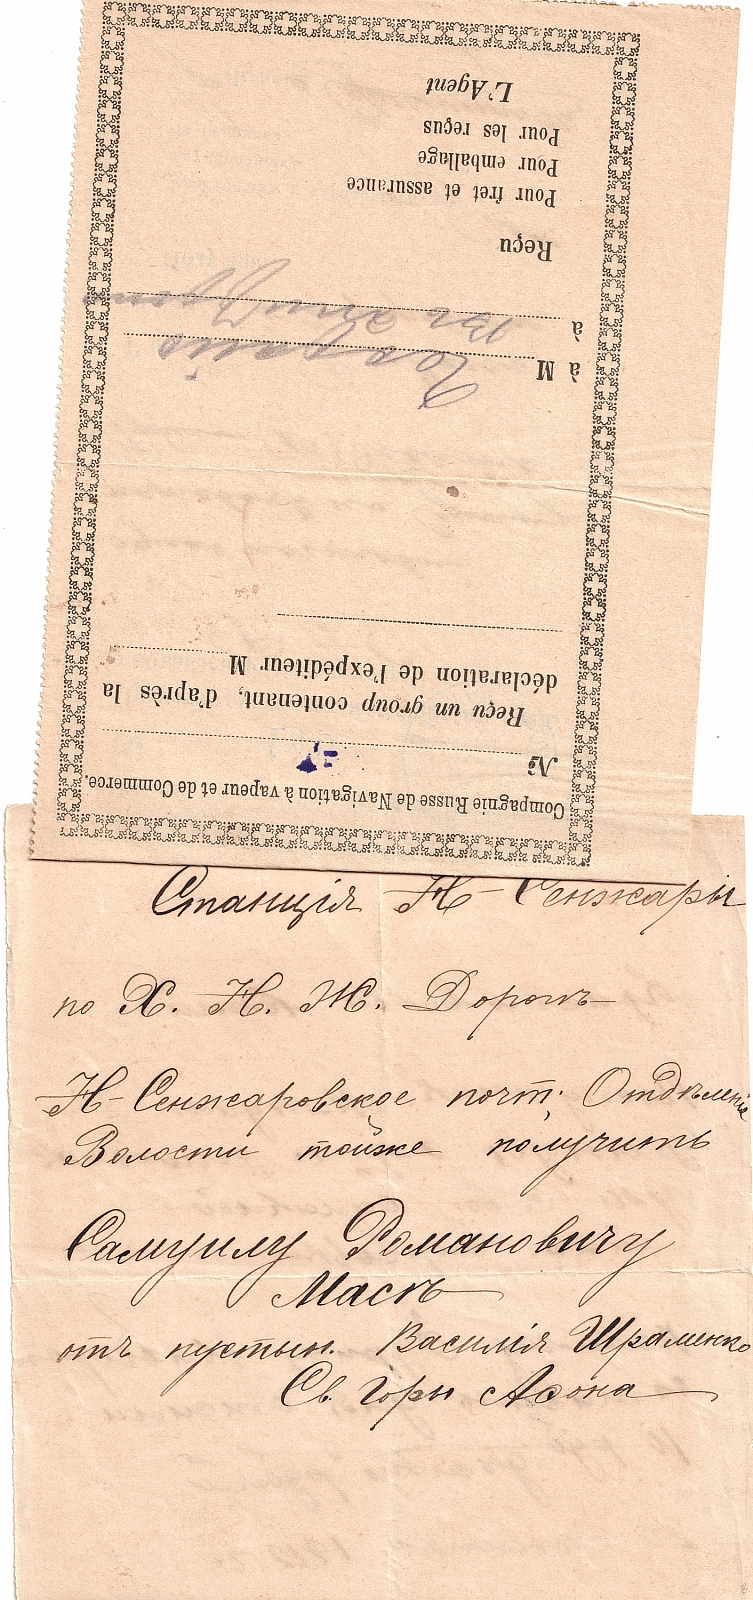 Compagnie Russe de Navigation à vapeur et de Commerce.
№
Reçu un group contenant, d'après la
déclaration de l'expéditeur M
à M
à
Reçu
Pour fret et assurance
Pour emballage
Pour les reçus
L'Agent
Станція Н-Сенжары
по Х. Н. Ж. Дорогъ
Н-Сенжаровское почт. Отдѣленіе
Волости тойже получить
Самуилу Романовичу
Маскъ
отъ пустын. Василія Шраменко
Св. Горы Аѳона